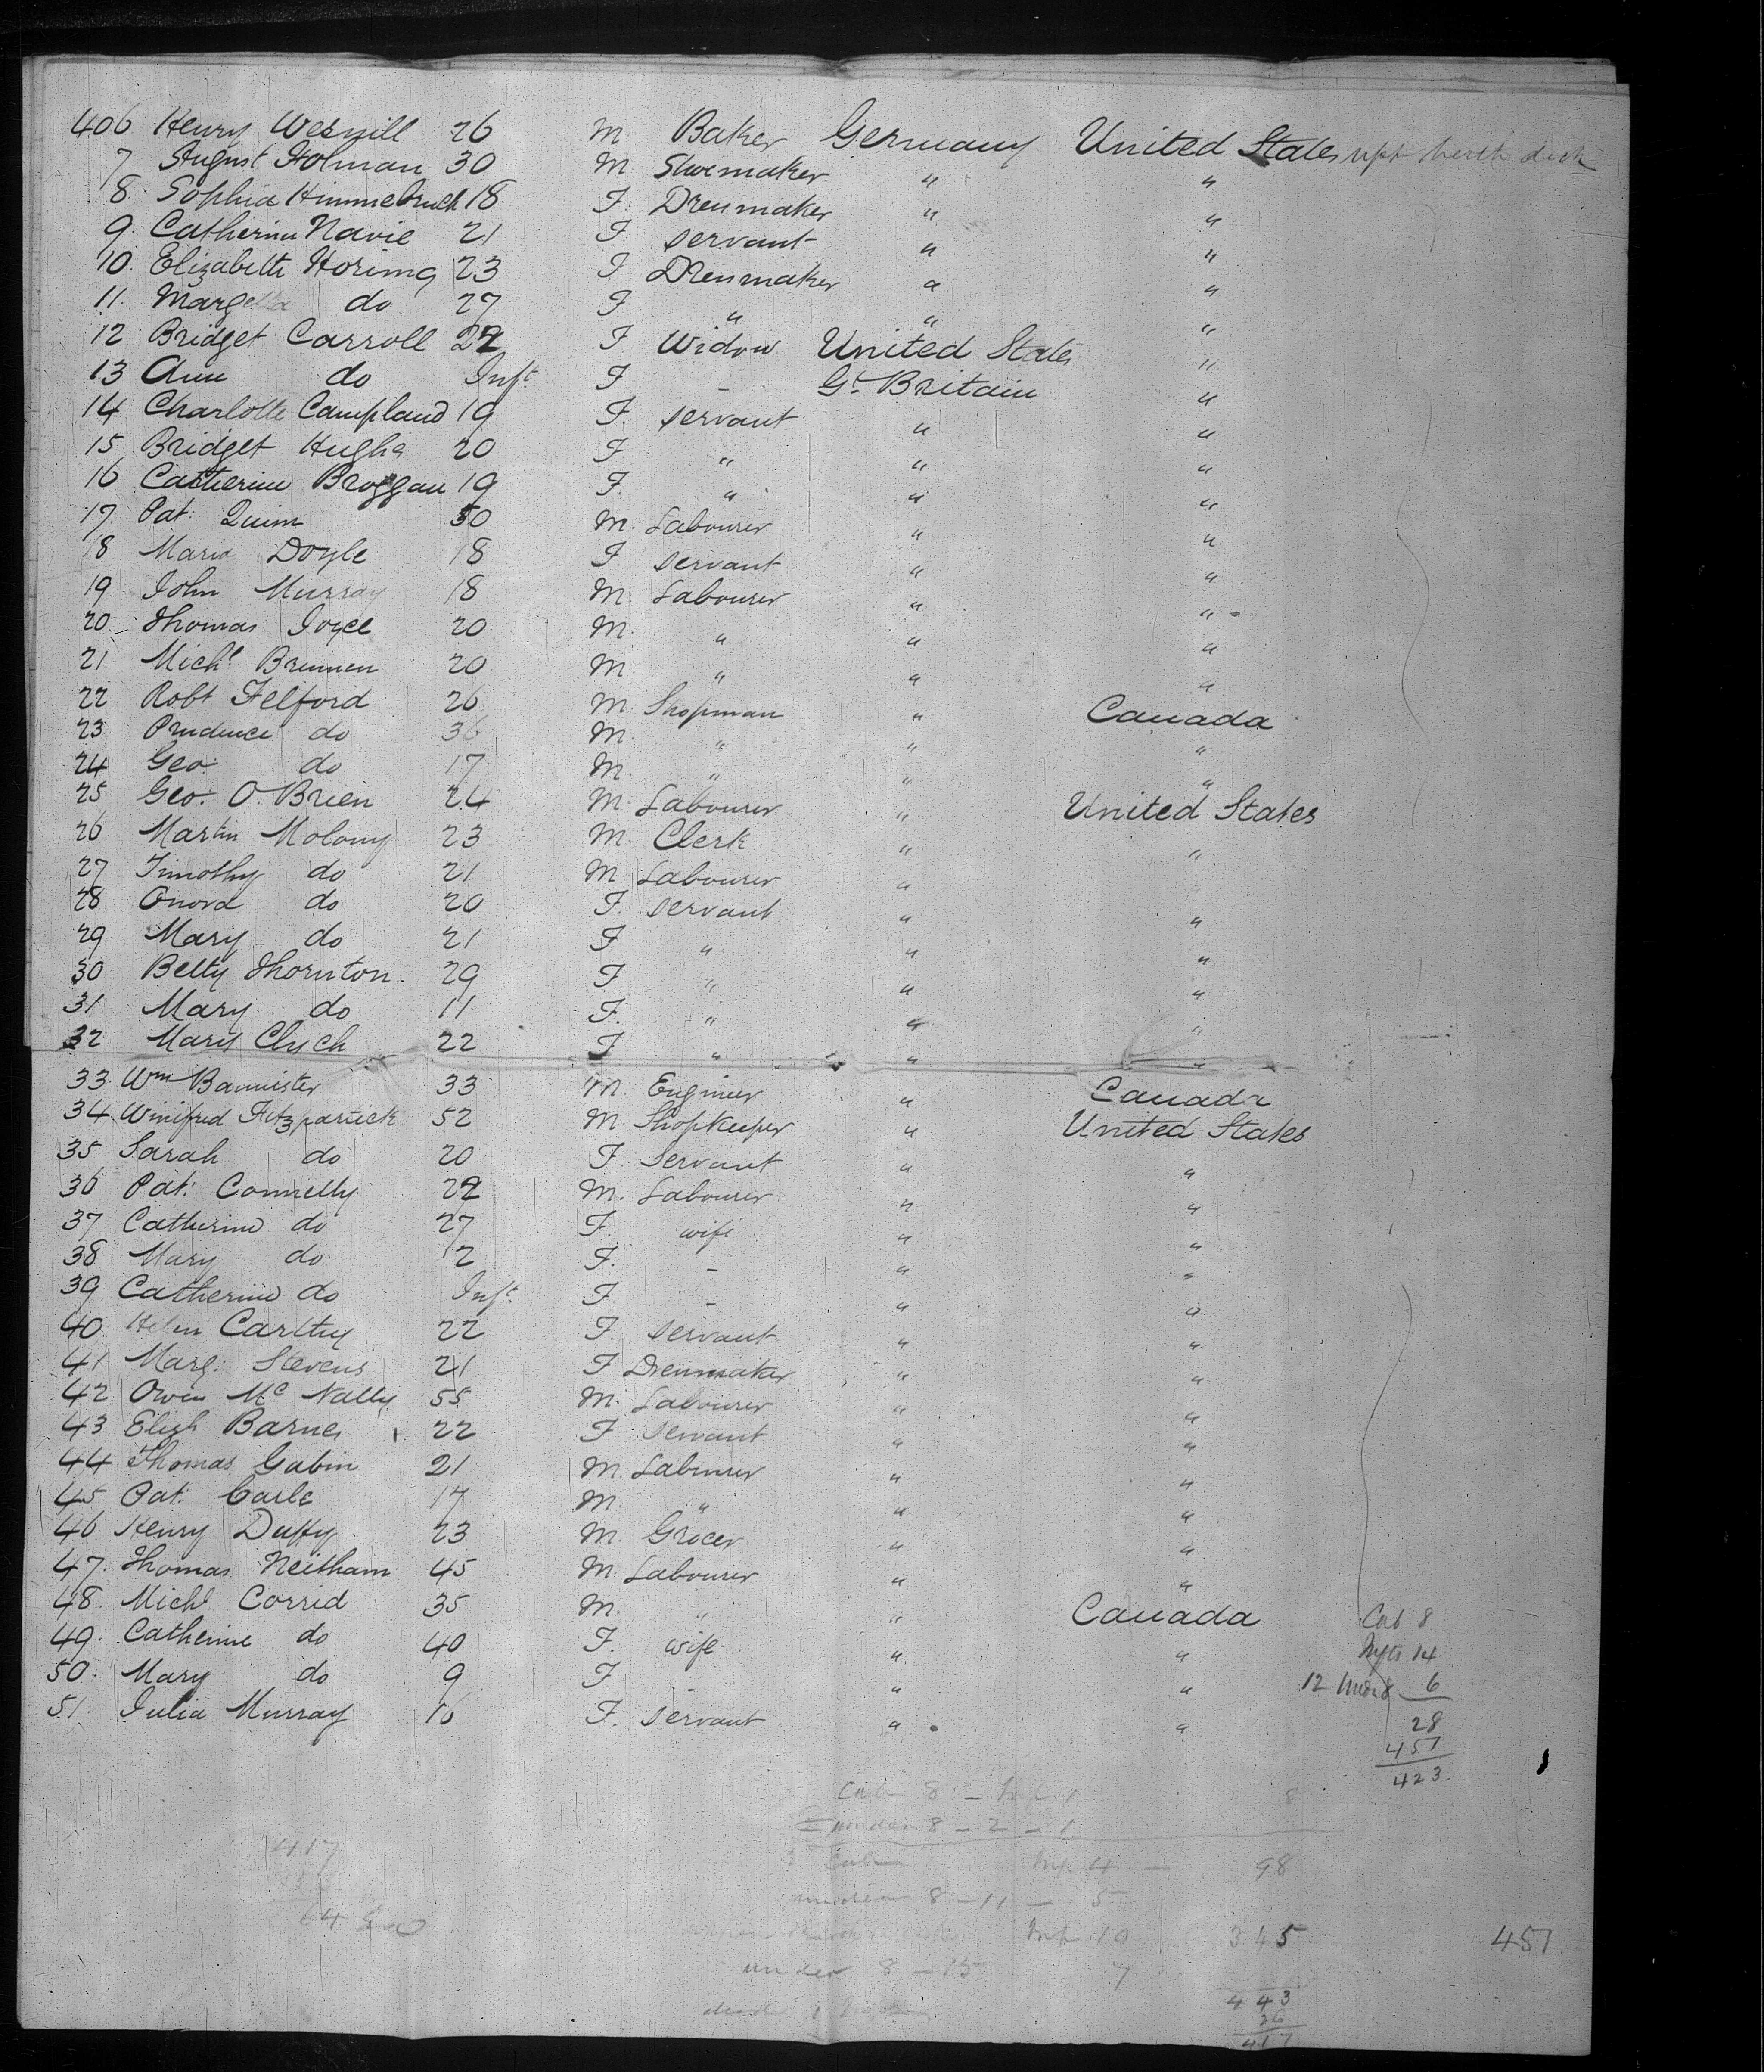 406 Henry Wesnill 26 M Baker Germany United States upr berth deck
7 August Holman 30 M Shoemaker " "
8 Sophia Himmebruch 18 F Dressmaker " "
9. Catherine Navie 21 F servant " "
10. Elizabeth Horing 23 F Dressmaker " "
11. Marg do 27 F " " "
12 Bridget Carroll 22 F Widow United States "
13 Ann do Inft F - Gt Britain "
14 Charlotte Campland 19 F. servant " "
15 Bridget Hughs 20 F " " "
16 Catherine Broggan 19 F. " " "
17. Pat: Quinn 50 M. Labourer " "
18 Maria Doyle 18 F servant " "
19. John Murray 18 M. Labourer " "
20 Thomas Joyce 20 M. " " "
21 Michl Brennen 20 M " " "
22 Robt Telford 26 M Shopman " Canada
23 Prudence do 36 M. " " "
24 Geo: do 17 M. " " "
25 Geo. O. Brien 24 M Labourer " United States
26 Martin Molony 23 M. Clerk " "
27 Timothy do 21 M Labourer "
28 Onora do 20 F. servant " "
29 Mary do 21 F " " "
30 Betty Thornton 29 F " " "
31 Mary do 11 F. " " "
32 Mary Clych 22 F " " "
33. Wm Bannister 33 M. Engineer " Canada
34. Winifred Fitzpartick 52 M Shopkeeper " United States
35 Sarah do 20 F. Servant " "
36 Pat: Connelly 22 M. Labourer " "
37 Catherine do 27 F. wife " "
38 Mary do 2 F. - " "
39 Catherine do Inft. F - " "
40. Helen Carlthy 22 F. servant " "
41 Marg: Stevens 21 F Dressmaker " "
42 Owen Mc Nally 55 M. Labourer " "
43 Elizh Barnes 22 F servant " "
44 Thomas Gabin 21 M. Labourer " "
45 Pat: Carle 17 M. " " "
46 Henry Duffy 23 M. Grocer " "
47. Thomas Neitham 45 M Labourer " "
48. Michl Corrid 35 M. " " Canada
49. Catherine do 40 F. wife " "
50. Mary do 9 F - " "
51. Julia Murray 16 F. servant " "
Cab 8
Infts 14
12 under 8 6
28
451
423
Cab 8 - 8
under 8 - 2 - 1
Inf 4 - 98
under 8 - 11 - 5
Inf 10 345
under 8 - 15 7
443
26
417
417
451